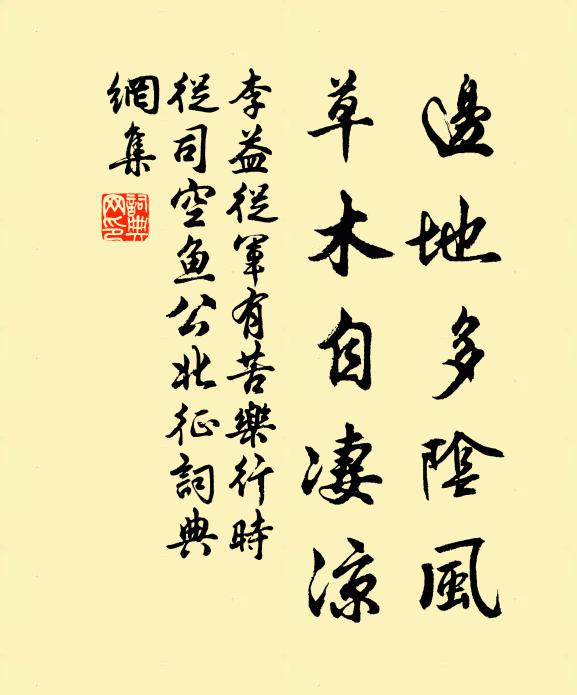 邊地多陰風
草木自淒涼
李益從軍有苦樂行時
從司空魚公北征詞典
網集
詞典網印